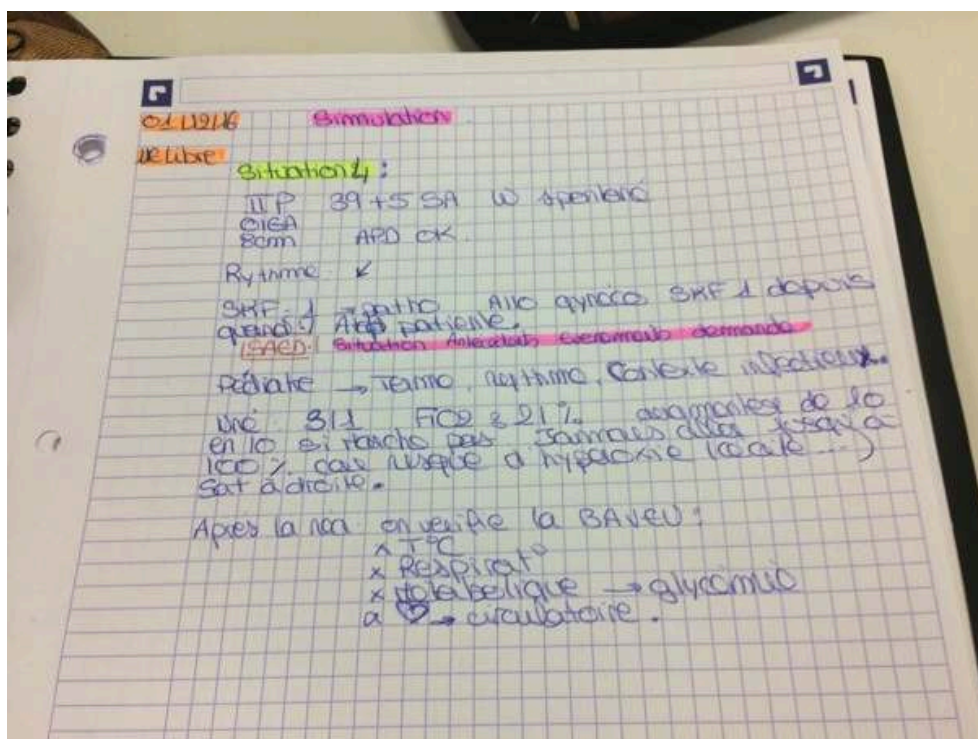 01/12/16 Simulation
UE Libre
Situation 4 :
IIP 39+5 SA W spontané
OIGA
8cm APD OK.
Rythme
SRF. 1 → patho Allo gynéco SRF 1 depuis
quand ? patiente.
SAED. Situation Antécédents Evenements demande
Pédiatre → Terme, rythme, Contexte infectieux.
Uné 3/1 FiO2 à 21% augmentez de 10
en 10 si marche pas Jamais aller jusqu'à
100% car risque d'hyperoxie
Sat à droite.
Après la réa on verifie la BAVEU :
x T°C
x Respirat°
x Métabolique → glycémie
→ circulatoire.